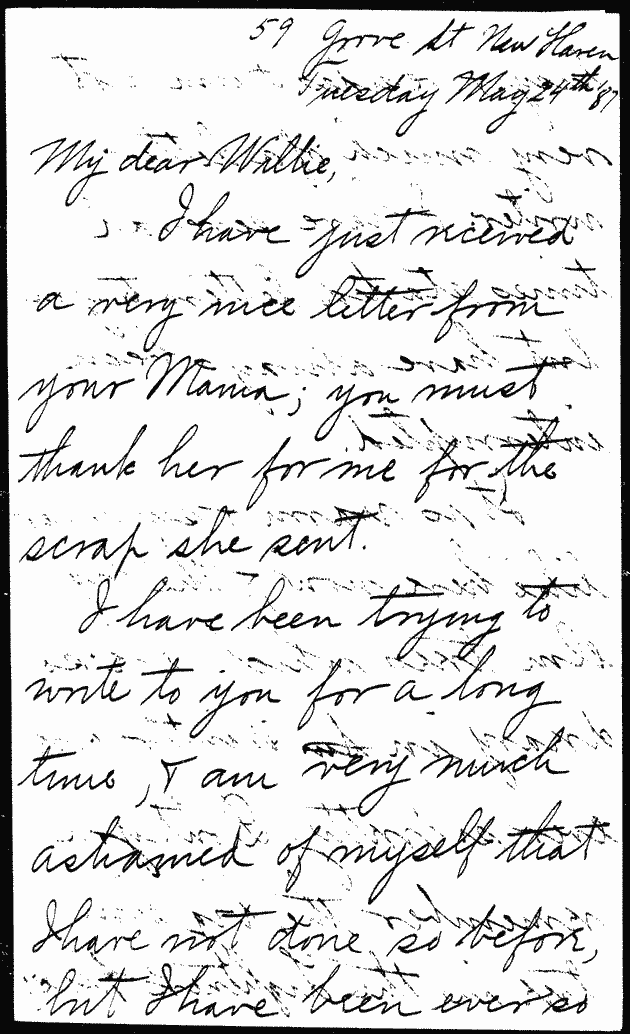 59 Grove St New Haven
Tuesday May 24th '87
My dear Willie,
I have just received
a very nice letter from
your Mama; you must
thank her for me for the
scrap she sent.
I have been trying to
write to you for a long
time, & am very much
ashamed of myself that
I have not done so before,
but I have been ever so